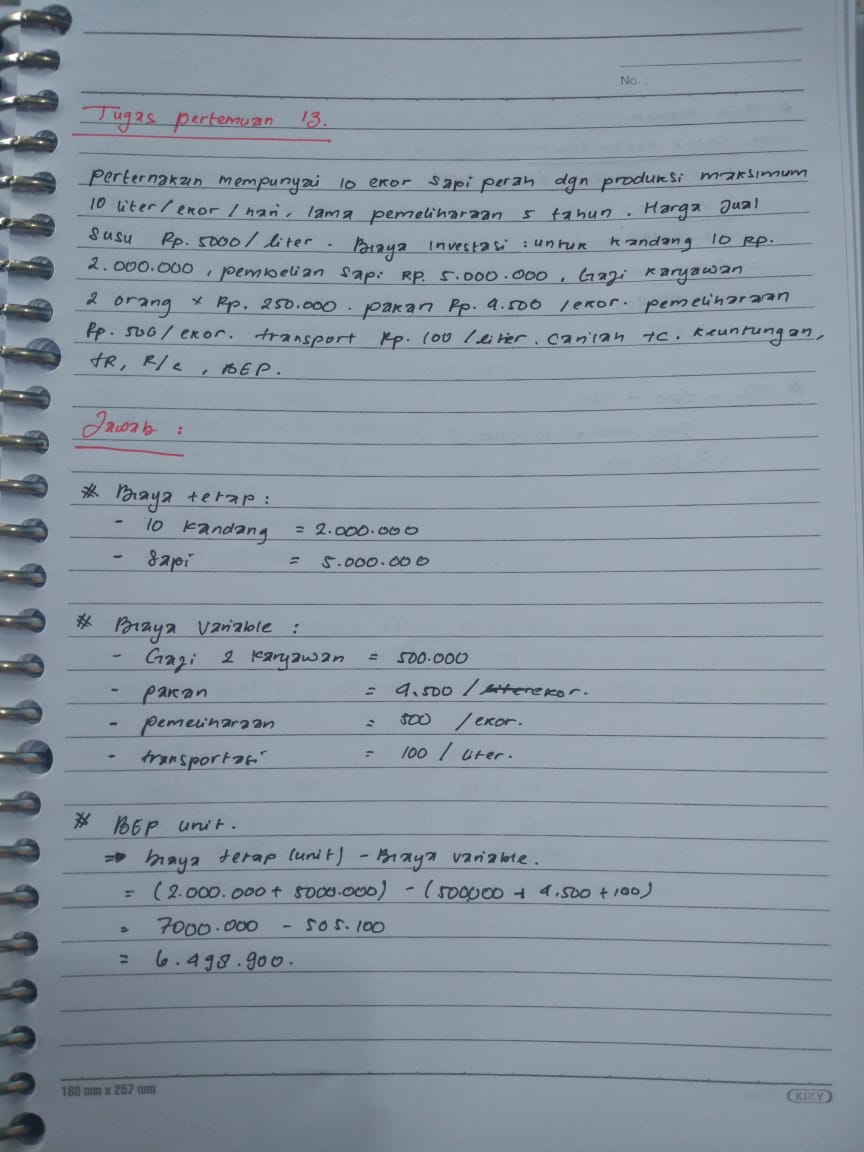 No. :
Tugas pertemuan 13.
perternakan mempunyai 10 ekor sapi perah dgn produksi maksimum
10 liter/ekor/hari, lama pemeliharaan 5 tahun. Harga Jual
Susu Rp. 5000/liter. Biaya Investasi : untuk kandang 10 Rp.
2.000.000, pembelian sapi RP. 5.000.000, Gaji karyawan
2 orang x Rp. 250.000. pakan Rp. 4.500 /ekor. pemeliharaan
Rp. 500/ekor. transport Rp. 100/liter. Carilah TC. Keuntungan,
TR, R/C, BEP.
Jawab :
* Biaya tetap :
- 10 kandang = 2.000.000
- Sapi = 5.000.000
* Biaya Variable :
- Gaji 2 karyawan = 500.000
- pakan = 4.500 / liter ekor.
- pemeliharaan = 500 /ekor.
- transportasi = 100 / liter.
* BEP unit.
=> biaya tetap (unit) - Biaya variable.
= (2.000.000 + 5000.000) - (500,000 + 4.500 + 100)
= 7000.000 - 505.100
= 6.498.900.
180 mm x 257 mm
KIKY